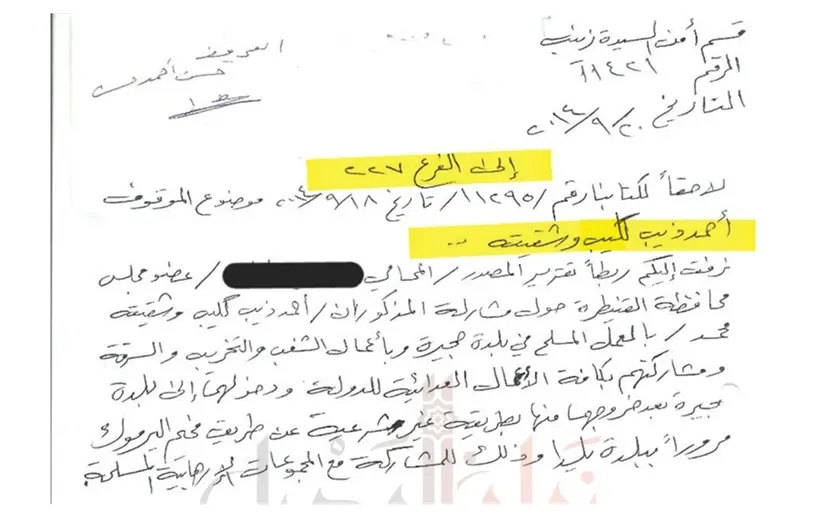 قسم أمن السيدة زينب
الرقم ١١٤٢١
التاريخ ٢٠١٤/٩/٢٠
العريف
حسن أحمد
إلى الفرع ٢٢٧
لاحقاً لكتابنا رقم /١١٢٩٥/ تاريخ ٢٠١٤/٩/١٨ موضوع الموقوف
أحمد ذيب كليب وشقيقه ..
نرفق إليكم ربطاً تقرير المصدر / المحامي / عضو مجلس
محافظة القنيطرة حول مشاركة المذكوران / أحمد ذيب كليب وشقيقه
محمد / بالعمل المسلح في بلدة حجيرة وبأعمال الشغب والتخريب والسرقة
ومشاركتهم بكافة الأعمال العدائية للدولة ودخولهما إلى بلدة
حجيرة بعد خروجهما منها بطريقة غير شرعية عن طريق مخيم اليرموك
مروراً ببلدة يلدا وذلك للمشاركة مع المجموعات الإرهابية المسلحة.